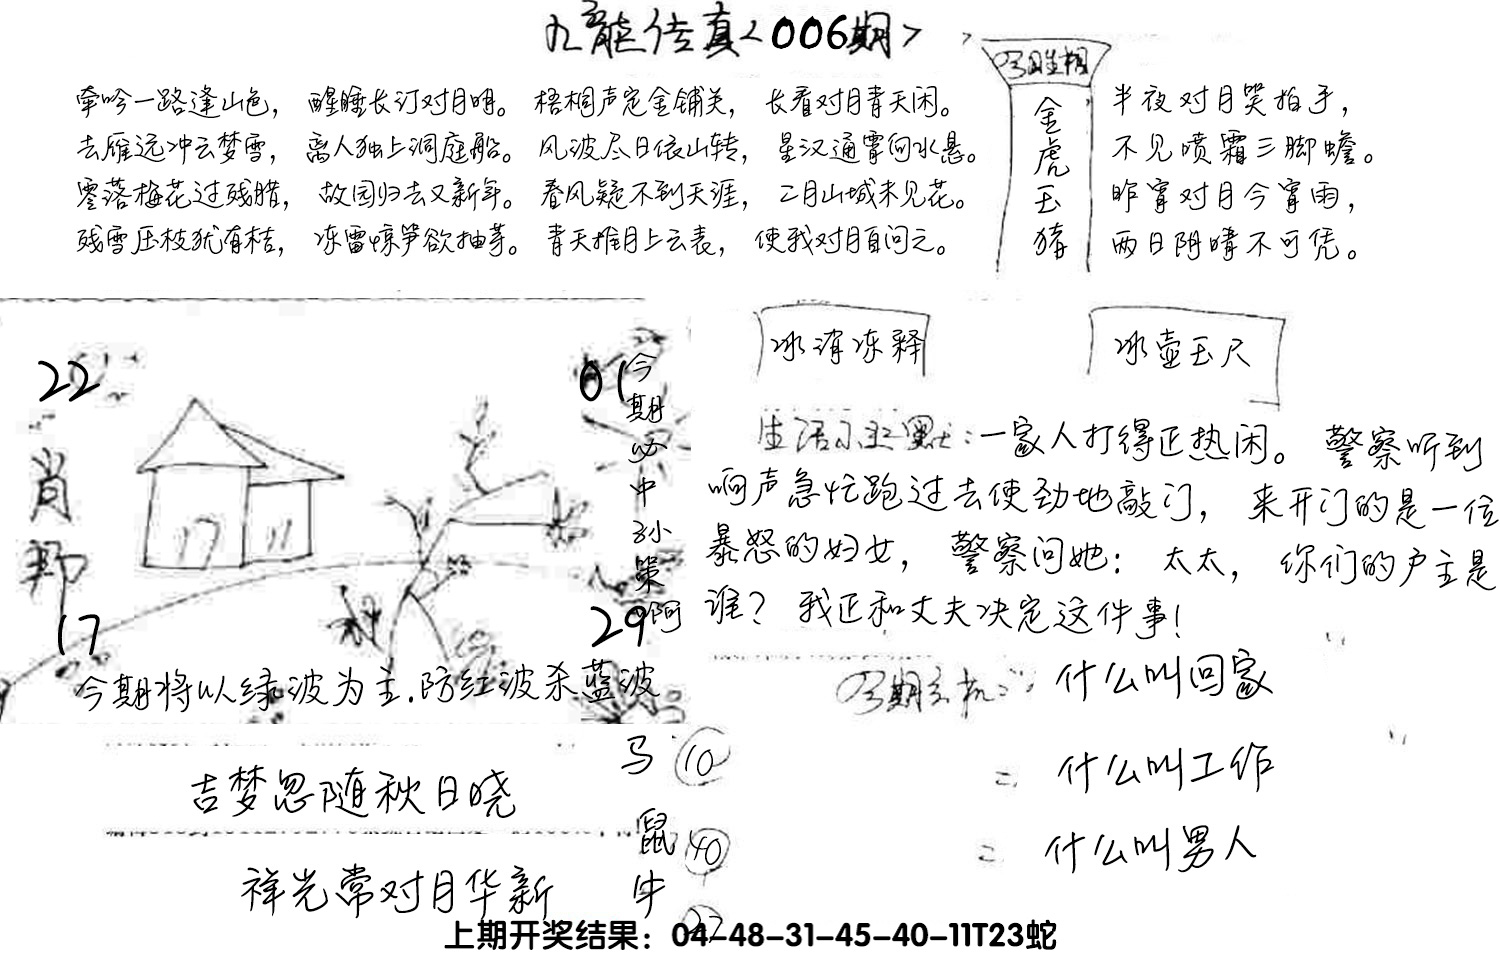 九龙传真<006期>
牵吟一路逢山色，醒睡长汀对月明。梧桐声定金铺关，长看对月青天闲。
去雁远冲云梦雪，离人独上洞庭船。风波尽日依山转，星汉通霄向水悬。
零落梅花过残腊，故园归去又新年。春风疑不到天涯，二月山城未见花。
残雪压枝犹有桔，冻雷惊笋欲抽芽。青天推月上云表，使我对月自问之。
金虎玉猪
半夜对月哭拍手，
不见喷霜三脚蟾。
昨宵对月今宵雨，
两日阴晴不可凭。
22
01
肖
17
29
今期必中孙策啊
今期将以绿波为主.防红波杀蓝波
冰消冻释
冰壶玉尺
生活小幽默:一家人打得正热闹。警察听到
响声急忙跑过去使劲地敲门，来开门的是一位
暴怒的妇女，警察问她：太太，你们的户主是
谁？我正和丈夫决定这件事！
什么叫回家
什么叫工作
什么叫男人
吉梦忽随秋日晓
祥光常对月华新
马 10
鼠 40
牛
上期开奖结果：04-48-31-45-40-11T23蛇